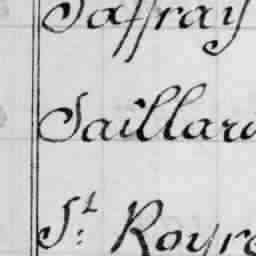 Jaffray
Saillard
St. Royre